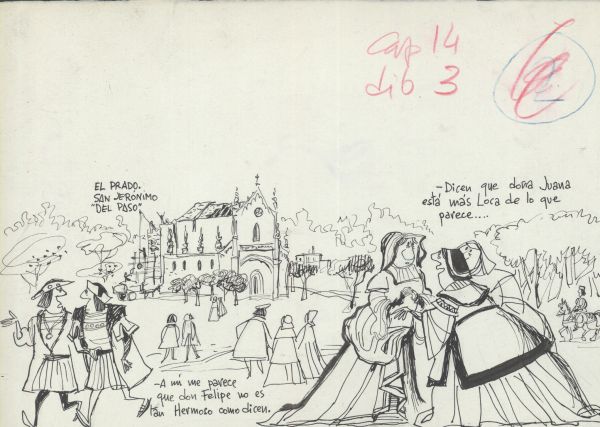 cap 14
dib. 3
EL PRADO.
SAN JERONIMO
"DEL PASO"
-Dicen que doña Juana
está más Loca de lo que
parece....
-A mí me parece
que don Felipe no es
tan Hermoso como dicen.